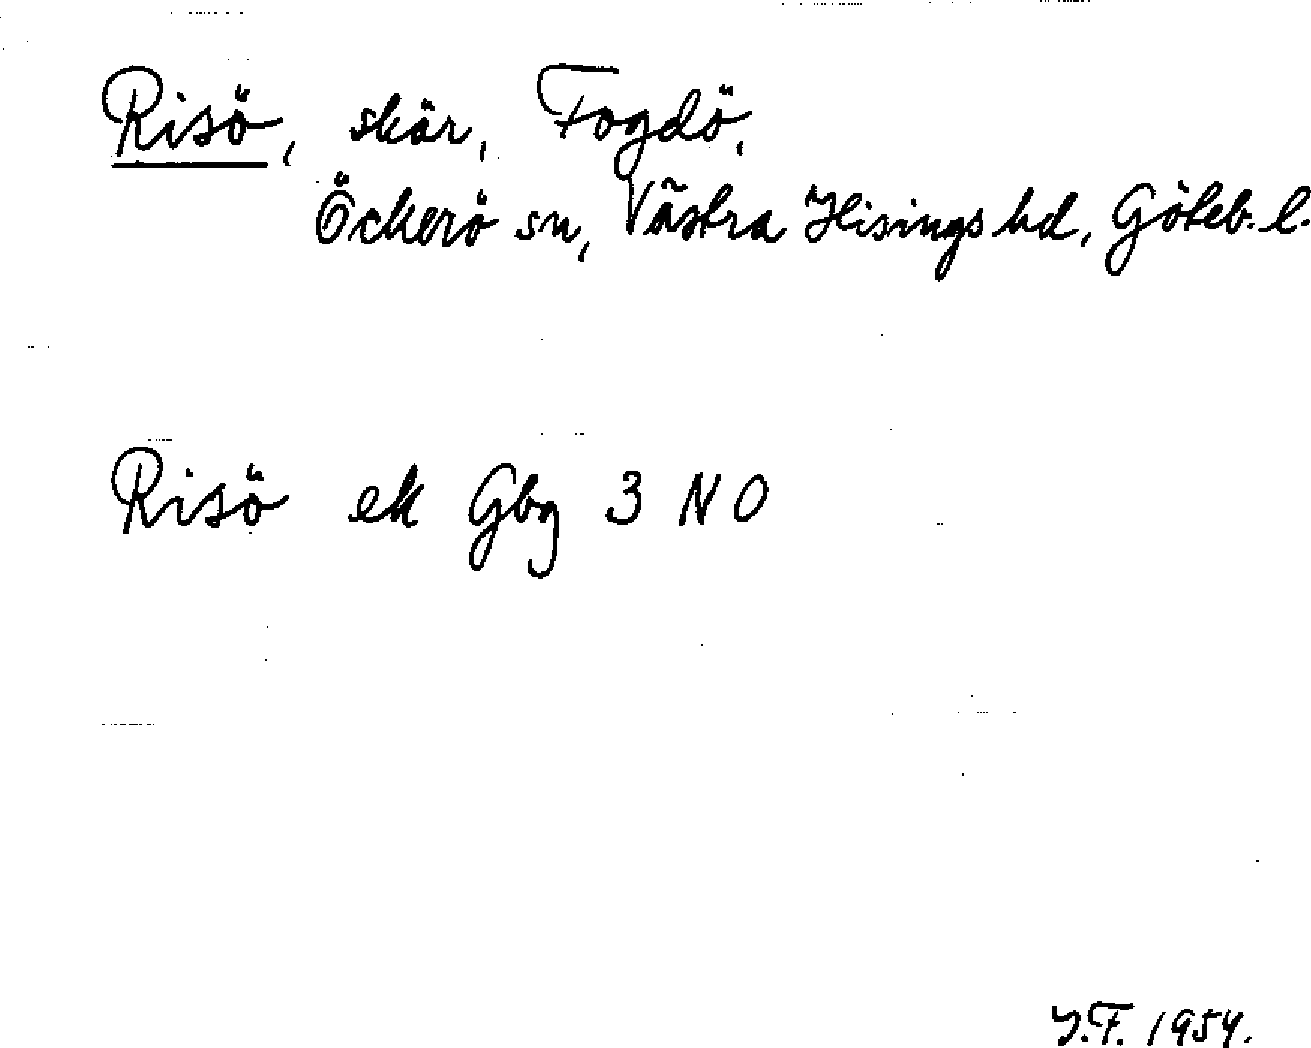 Risö, skär, Fogdö,
Öckerö sn, Västra Hisings hd, Göteb. l.
Risö ek Gbg 3 NO
J.F. 1954.